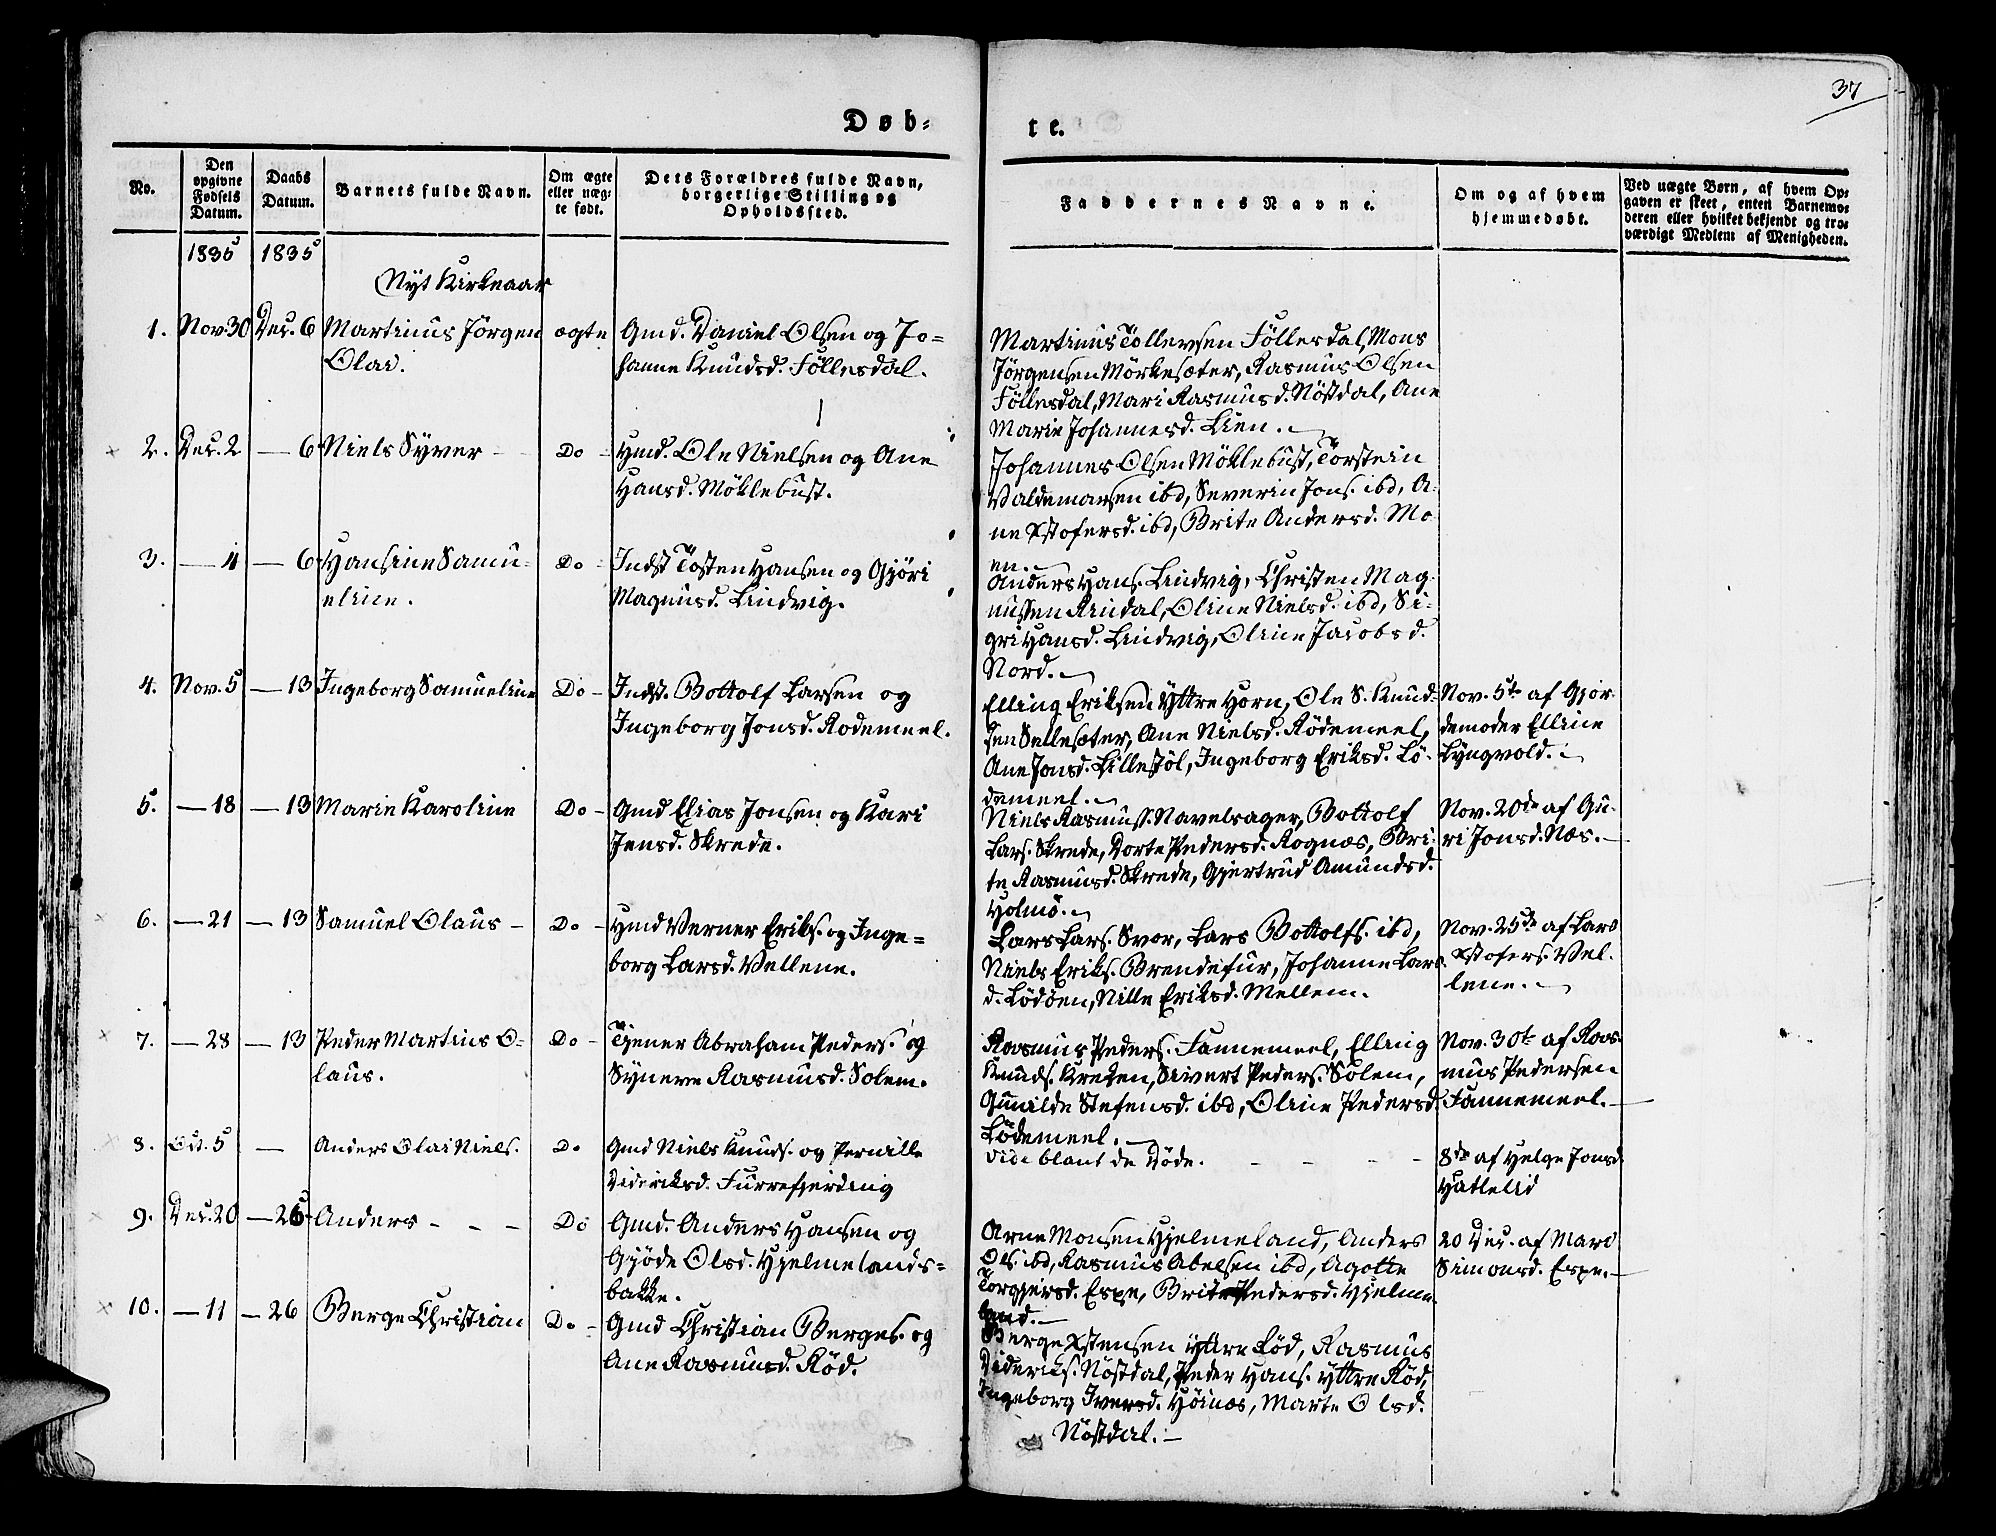 37
Døb-
te.
No.
Den opgivne Fødsels Datum.
Daabs Datum.
Barnets fulde Navn.
Om ægte eller uæg-te født.
Dets Forældres fulde Navn, borgerlige Stilling og Opholdssted.
Faddernes Navne.
Om og af hvem hjemmedøbt.
Ved uægte Børn, af hvem Op-gaven er skeet, enten Barnemo-deren eller hvilket bekjendt og tro-værdigt Medlem af Menigheden.
1835 1835
Nyt Kirkeaar
1. Nov. 30 Dec. 6 Martinus Jörgen ægte Gmd. Daniel Olsen og Jo=
Olai. hanne Knudsd. Föllesdal.
Martinus Tollevsen Föllesdal, Mons
Jörgensen Mörkesæter, Rasmus Olsen
Föllesdal, Mari Rasmusd. Nöstdal, Ane
Marie Johannesd. Lien.
2. Dec. 2 — 6 Niels Syver Do Hmd. Ole Nielsen og Ane
Hansd. Möklebust.
Johannes Olsen Möklebust, Torstein
Valdemarsen ibd, Severin Jons. ibd, A-
ne Xstofersd. ibd, Brite Andersd. Mo-
en.
3. — 4 — 6 Hansine Samu- Do Indst Tosten Hansen og Gjöri
eline. Magnusd. Lindvig.
Anders Hans. Lindvig, Christen Mag-
nussen Rindal, Oline Nielsd. ibd, Si-
gri Hansd. Lindvig, Oline Jacobsd.
Nord.
4. Nov. 5 — 13 Ingeborg Samueline Do Indst. Bottolf Larsen og
Ingeborg Jonsd. Rodemeel.
Elling Eriksen Yttre Horn, Ole S. Knud-
sen Sellesæter, Ane Nielsd. Rödemeel,
Ane Jonsd. Lillestöl, Ingeborg Eriksd. Lö-
demeel.
Nov. 5te af Gjor-
demoder Elline
Lyngvold.
5. — 18 — 13 Marie Karoline Do Gmd Elias Jonsen og Kari
Jensd. Skrede.
Niels Rasmuss. Navelsager, Bottolf
Lars. Skrede, Dorte Pedersd. Rognæs, Bri-
te Rasmusd. Skrede, Gjertrud Amundsd.
Holmö.
Nov. 20de af Gu-
ri Jonsd. Næs.
6. — 21 — 13 Samuel Olaus Do Hmd Verner Eriks. og Inge=
borg Larsd. Vellene.
Lars Lars. Svor, Lars Bottolfs. ibd,
Niels Eriks. Brendefur, Johanne Lars-
d. Lödöen, Nille Eriksd. Mellem.
Nov. 25de af Lars
Xstofers. Vel-
lene.
7. — 28 — 13 Peder Martius O- Do Tjener Abraham Peders. og
laus. Synève Rasmusd. Solem.
Rasmus Peders. Fannemeel, Elling
Knuds. Kreken, Sivert Peders. Solem,
Gunilde Stefensd. ibd, Oline Pedersd.
Lödemeel.
Nov. 30te af Ras-
mus Pedersen
Fannemeel.
8. Oct. 5 — Anders Olai Niels. Do Gmd Niels Knuds. og Pernille
Dideriksd. Furrefjerding
Vide blant de Döde.
8de af Helge Jonsd.
Hatlelid
9. Dec. 20 — 26 Anders Do Gmd. Anders Hansen og
Gjöde Olsd. Hjelmelands=
bakke.
Arne Monsen Hjelmeland, Anders
Ols. ibd, Rasmus Abelsen ibd, Agotte
Torgjersd. Espe, Brite Pedersd. Hjelme-
land.
20 Dec. af Mari
Simonsd. Espe.
10. — 11 — 26 Berge Christian Do Gmd Christian Berges. og
Ane Rasmusd. Röd.
Berge Xstensen Yttre Röd, Rasmus
Dideriks. Nöstdal, Peder Hans. Yttre Röd,
Ingeborg Iversd. Höinæs, Marte Olsd.
Nöstdal.